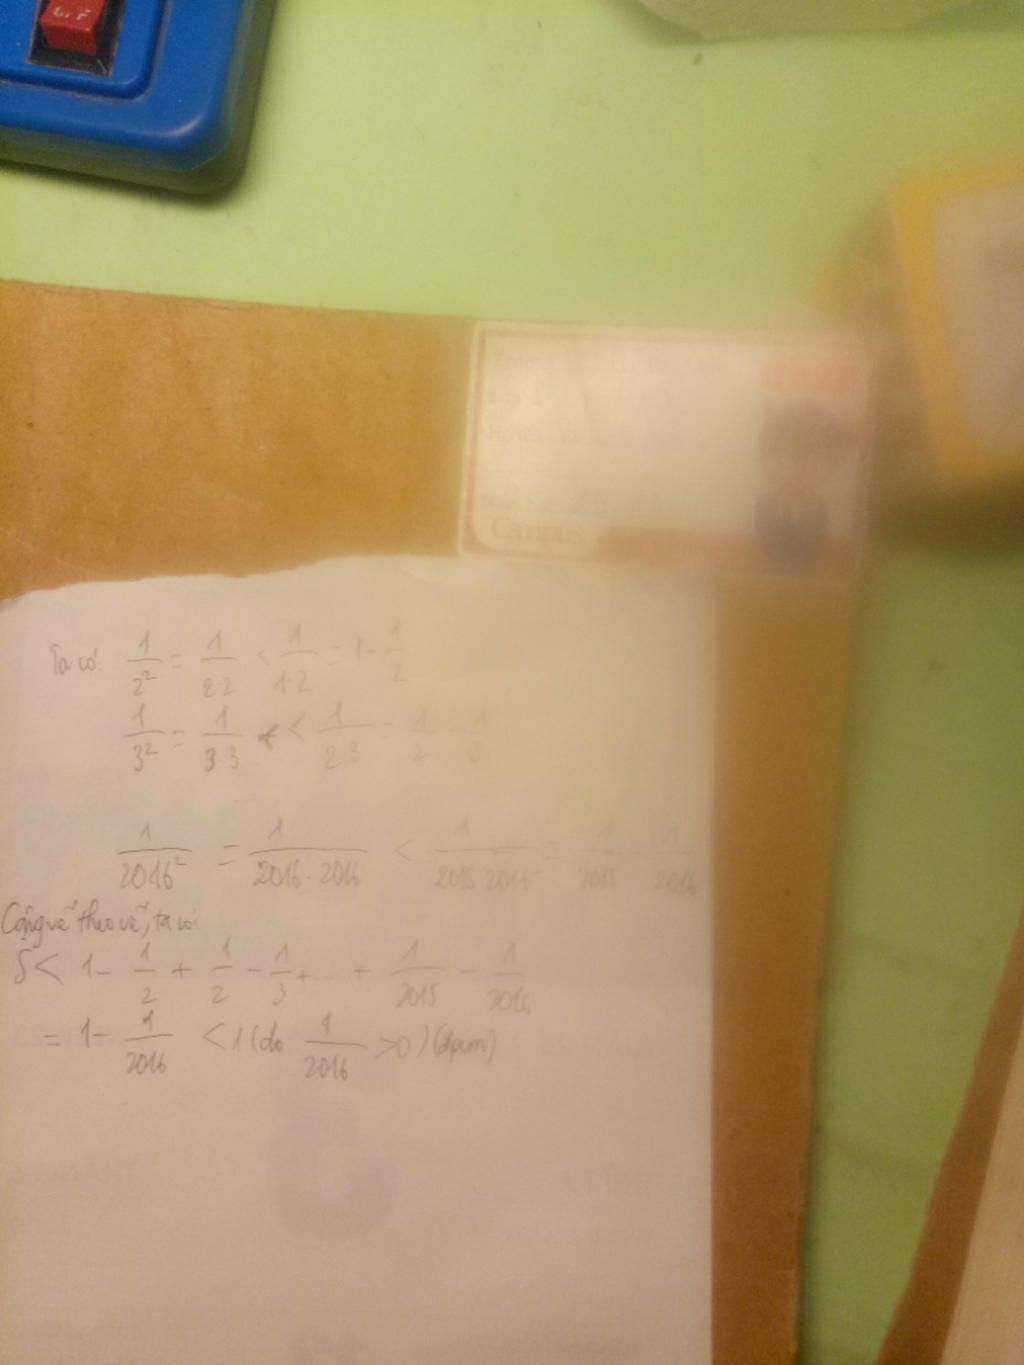 Campus
Ta có: 1/2² = 1/2·2 < 1/1·2 = 1 - 1/2
1/3² = 1/3·3 < 1/2·3 = 1/2 - 1/3
1/2016² = 1/2016·2016 < 1/2015·2016 = 1/2015 - 1/2016
Cộng vế theo vế, ta có:
S < 1 - 1/2 + 1/2 - 1/3 + ... + 1/2015 - 1/2016
= 1 - 1/2016 < 1 (do 1/2016 > 0) (đpcm)